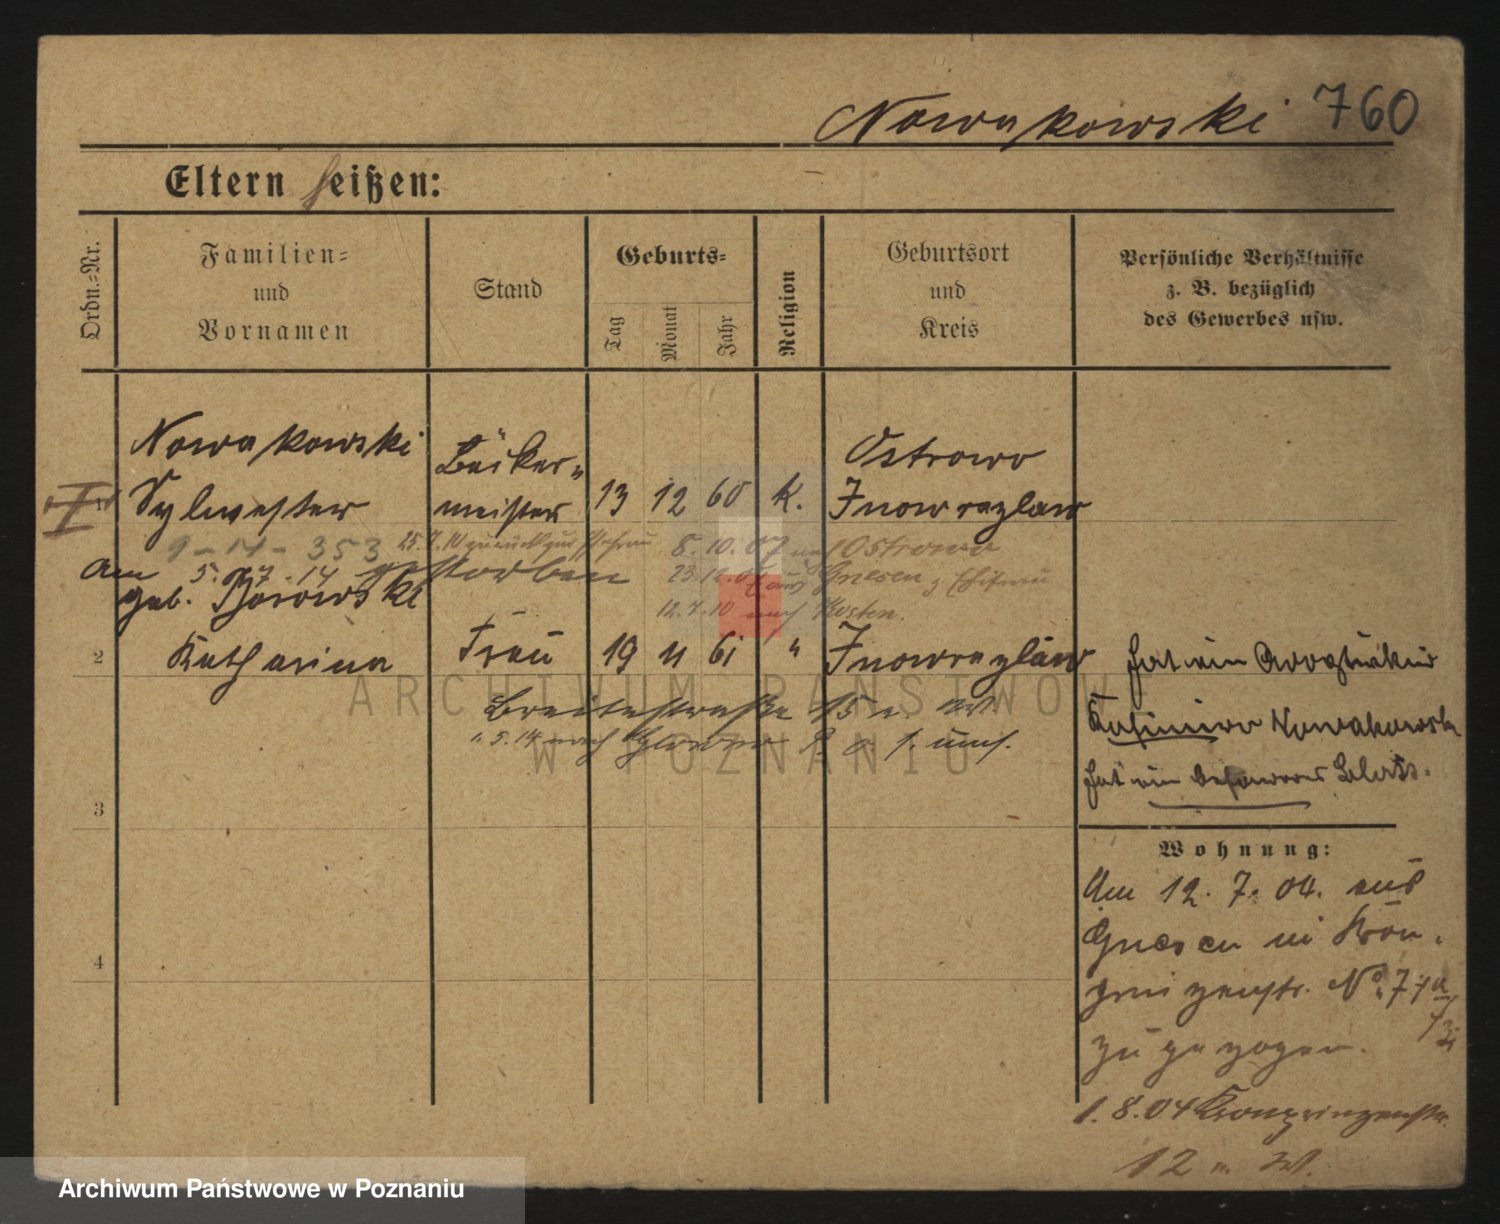 Nowakowski 760
Eltern heißen:
Ordn.=Nr.
Familien=
und
Vornamen
Stand
Geburts=
Tag
Monat
Jahr
Religion
Geburtsort
und
Kreis
Persönliche Verhältnisse
z. B. bezüglich
des Gewerbes usw.
Nowakowski Bäcker= Ostrowo
Sylwester meister 13 12 60 K. Inowrazlaw
9-14-353 25.7.10 zurück zur 8.10.07 nach Ostrowo
Am 5.7.14 gestorben 23.12.07 aus Gnesen z. Ehefrau
geb. Borowski 12.7.10 nach Kosten.
2 Katharina Frau 19 11 61 " Inowrazlaw
hat ein
Breitestraße 15
5.14 nach umf.
Kasimira Nowakowski
hat ein besonderes Blatt.
3
Wohnung:
Am 12.7.04. aus
Gnesen in Kron=
prinzenstr. No 77a
zugezogen.
4
1.8.04 Kronprinzenstr.
12 W.
ARCHIWUM PAŃSTWOWE
W POZNANIU
Archiwum Państwowe w Poznaniu